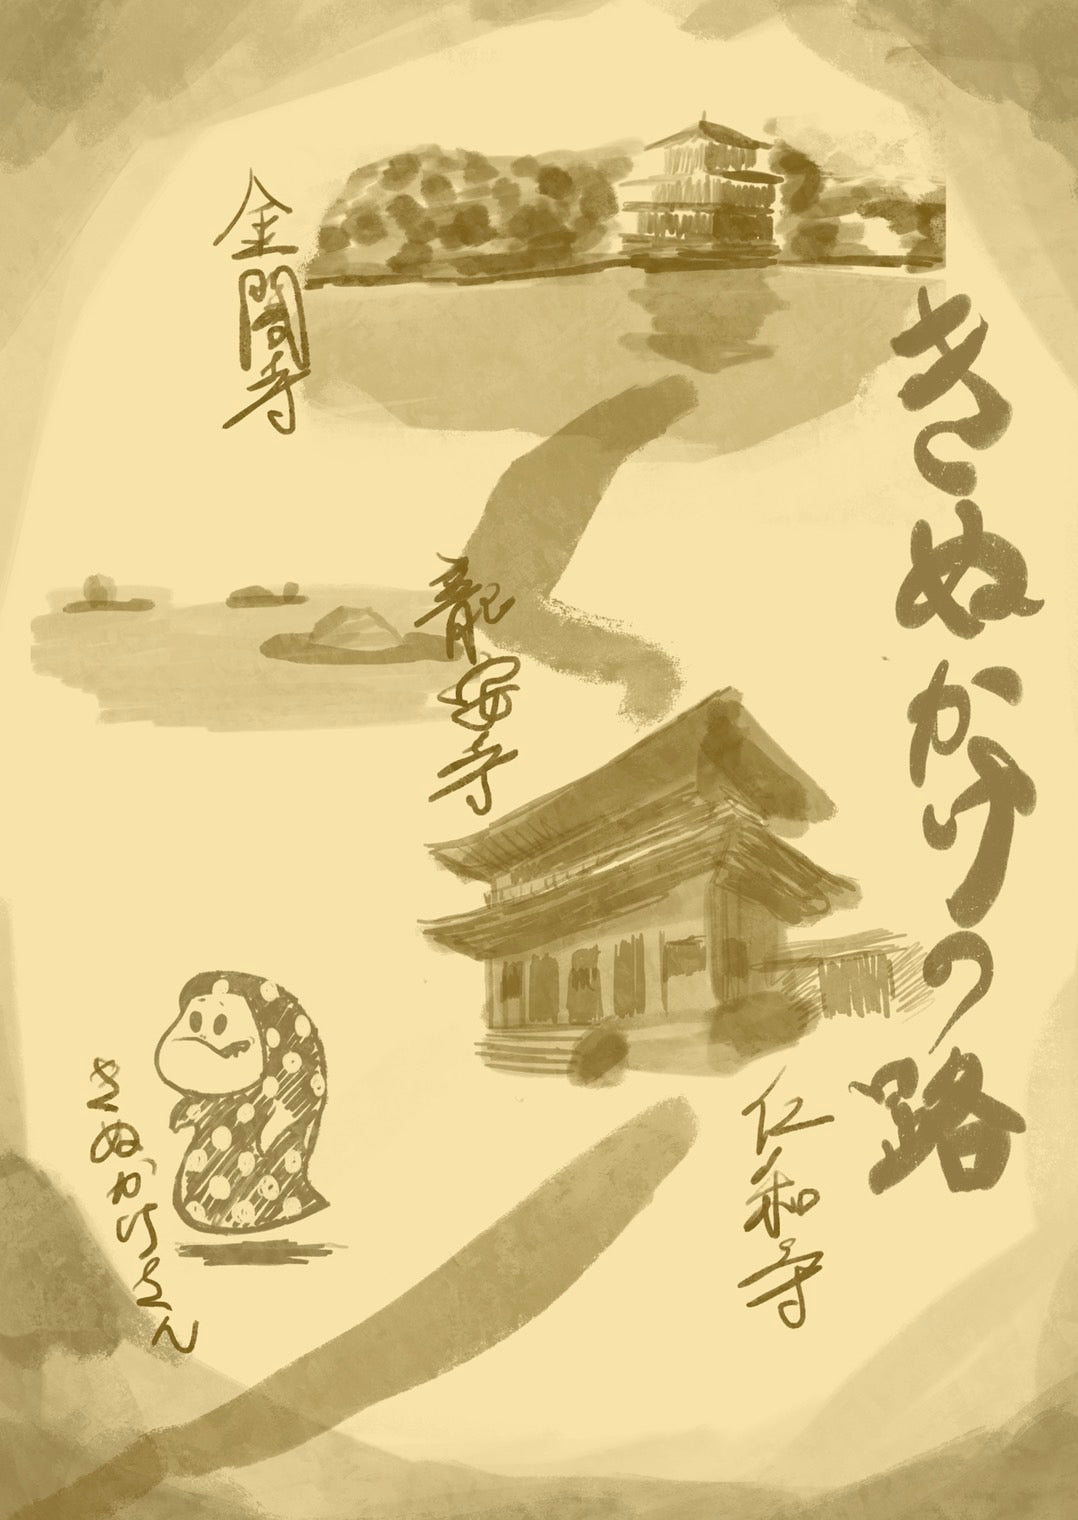 きぬかけの路
金閣寺
龍安寺
仁和寺
きぬかけさん